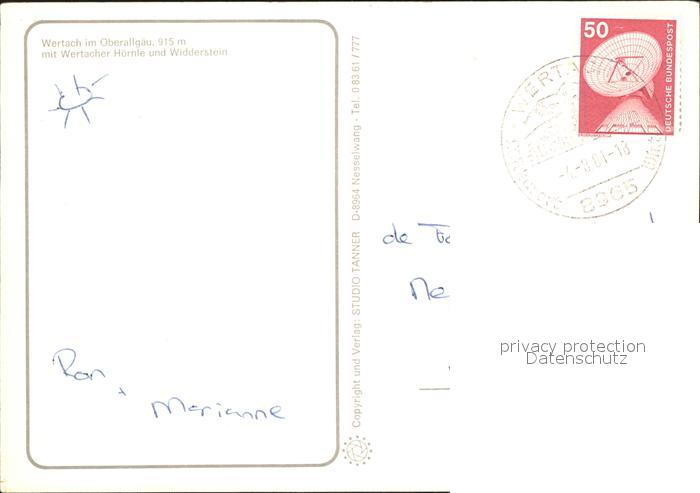 Wertach im Oberallgäu, 915 m
mit Wertacher Hörnle und Widderstein
Ron
+ Marianne
Copyright und Verlag: STUDIO TANNER D-8964 Nesselwang - Tel. 0 83 61 / 777
50
DEUTSCHE BUNDESPOST
8965
de
privacy protection
Datenschutz